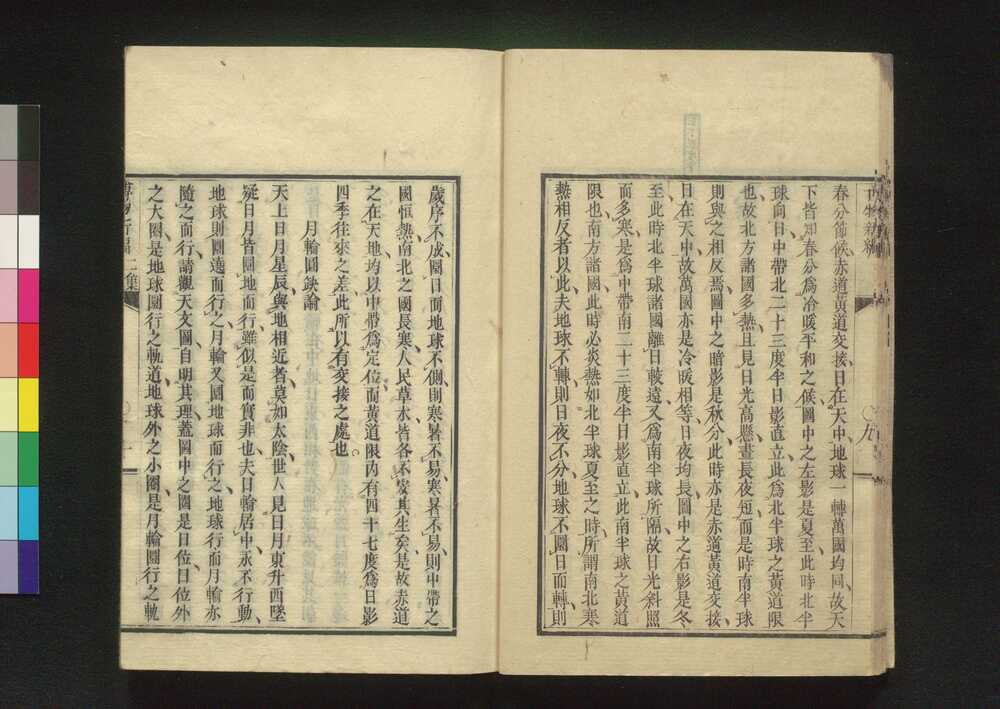 春分節候、赤道黃道交接、日在天中、地球一轉、萬國均同、故天
下皆知春分為冷暖平和之候、圖中之左影是夏至、此時北半
球向日、中帶北二十三度半、日影直立、此為北半球之黃道限
也、故北方諸國多熱、且見日光高懸、晝長夜短、而是時南半球
則與之相反焉、圖中之暗影是秋分、此時亦是赤道黃道交接、
日在天中、故萬國亦是冷暖相等、日夜均長、圖中之右影是冬
至、此時北半球諸國、離日較遠、又為南半球所隔、故日光斜照
而多寒、是為中帶南二十三度半、日影直立、此南半球之黃道
限也、南方諸國、此時必炎熱、如北半球夏至之時、所謂南北寒
熱相反者以此、夫地球不轉、則日夜不分、地球不圜日而轉、則
歲序不成、圜日而地球不側、則寒暑不易、寒暑不易、則中帶之
國恒熱、南北之國長寒、人民草木、皆各不安其生矣、是故赤道
之在天地、均以中帶為定位、而黃道限內有四十七度、為日影
四季往來之差、此所以有交接之處也。
月輪圓缺論
天上日月星辰、與地相近者、莫如太陰、世人見日月東升西墜、
疑日月皆圜地而行、雖似是而實非也、夫日輪居中、永不行動、
地球則圜遶而行、之月輪又圜地球而行、之地球行而月輪亦
隨之而行、請觀天文圖、自明其理、蓋圖中之圈是日位、日位外
之大圈、是地球圜行之軌道、地球外之小圈、是月輪圜行之軌
九